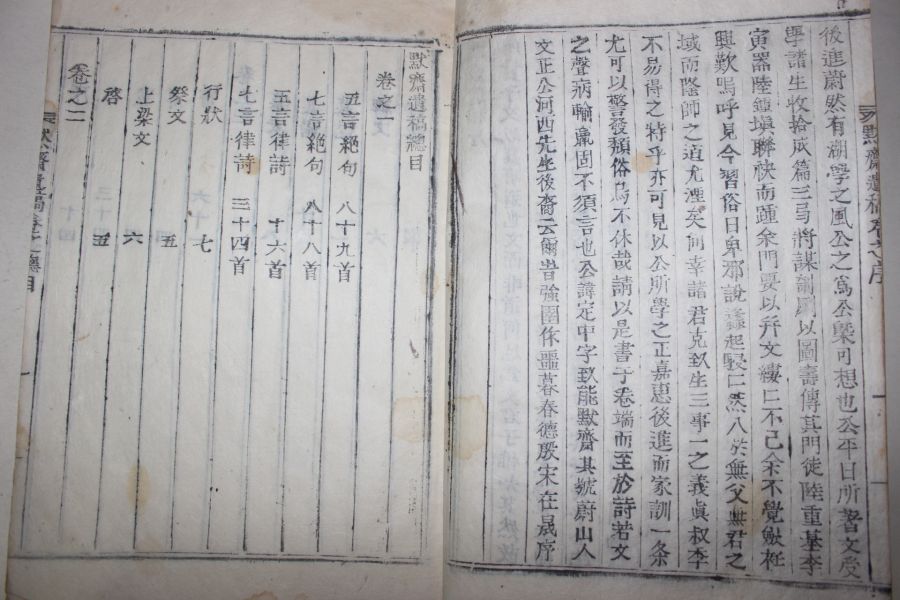 後進蔚然有湖學之風公之爲公槩可想也公平日所著文受
學諸生收拾成篇三弓將謀剞劂以圖壽傳其門徒陸重基李
寅器陸鎭塡聯袂而踵余門要以弁文縷二不已余不覺斂衽
興歎嗚呼見今習俗日卑邪說蠭起駸二然入於無父無君之
域而隆師之道尤湮矣何幸諸君克効生三事一之義眞叔季
不易得之特乎亦可見以公所學之正嘉惠後進而家訓一条
尤可以警發頹俗烏不休哉請以是書于卷端而至於詩若文
之聲病輸贏固不須言也公諱定中字致能默齋其號蔚山人
文正公河西先生後裔云爾昔強圉作噩暮春德殷宋在晟序
默齋遺稿卷之序
默齋遺稿總目
卷之一
五言絶句 八十九首
七言絶句 八十八首
五言律詩 十六首
七言律詩 三十四首
行狀 七
祭文 五
上梁文 六
啓 五
卷之二
默齋遺稿卷之總目